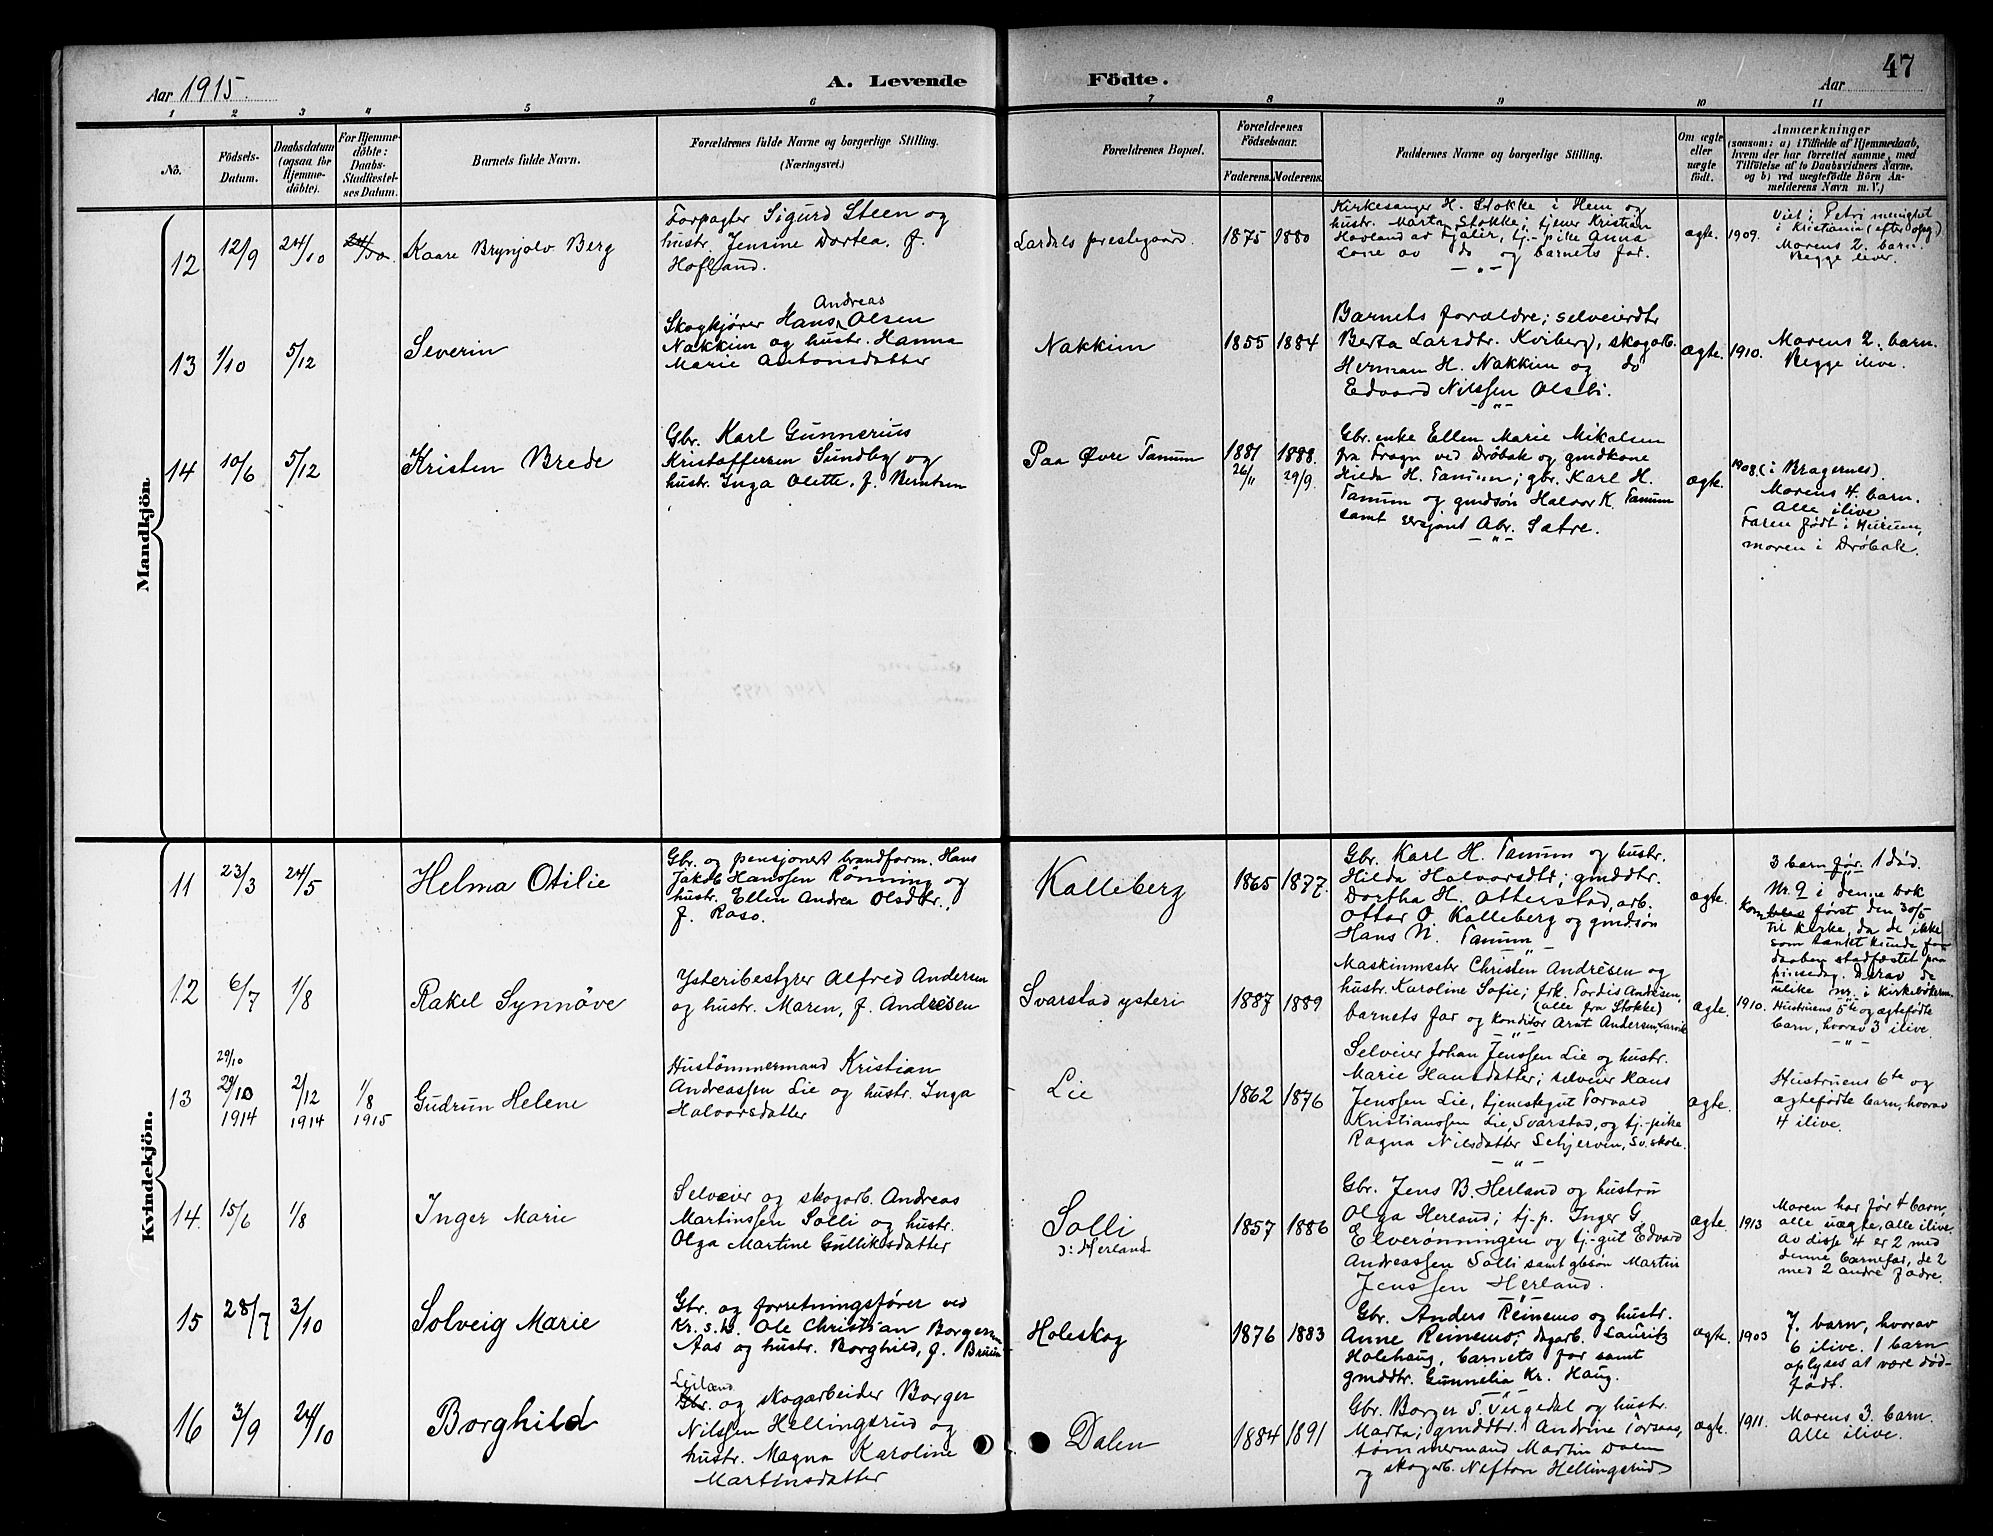 47
Aar 1915.
A. Levende Födte.
Aar
1 2 3 4 5 6 7 8 9 10 11
No.
Födsels-
Datum.
Daabsdatum
(ogsaa for
Hjemme-
döbte).
For Hjemme-
döbte:
Daabs-
Stadfæstel-
ses Datum.
Barnets fulde Navn.
Forældrenes fulde Navne og borgerlige Stilling.
(Næringsvei.)
Forældrenes Bopæl.
Forældrenes
Födselsaar.
Faderens. Moderens.
Faddernes Navne og borgerlige Stilling.
Om ægte
eller
uægte
födt.
Anmærkninger
(saasom: a) i Tilfælde af Hjemmedaab,
hvem der har forrettet samme, med
Tilföielse af to Daabsvidners Navne,
og b) ved uægtefödte Börn An-
melderens Navn m. V.)
Mandkjön
12 12/9 24/10 24/10.
Kaare Brynjolv Berg
Forpagter Sigurd Steen og
hustr. Jensine Dortea. f.
Hofland.
Lardals prestegaard.
1875 1880
Kirkesanger H. Stokke i Hem og
hustr. Marta Stokke; tjener Kristian
Hovland av Fjaler, tj.-pike Anna
Lone av do og barnets far.
-"-
ægte. 1909.
Viet i Petri menighet
i Kristiania (efter opg.)
Morens 2. barn.
Begge lever.
13 1/10 5/12
Severin
Andreas
Skogkjører Hans Olsen
Nakkim og hustr. Hanna
Marie Antonsdatter
Nakkim
1855 1884
Barnets forældre; selveierdtr
Berta Larsdtr. Kviberg, skogarb.
Herman H. Nakkim og do
Edvard Nilssen Olsbi.
-"-
ægte. 1910.
Morens 2. barn.
Begge ilive.
14 10/6 5/12
Kristen Brede
Gbr. Karl Gunnerius
Kristoffersen Sundby og
hustr. Inga Olette, f. Berntsen
Paa Øvre Tanum
1881 1888.
26/11 29/9.
Gbr. enke Ellen Marie Mikalsen
fra Frogn ved Drøbak og gmdkone
Hilda H. Tanum; gbr. Karl H.
Tanum og gmdsøn Halvor K. Tanum
samt sersjant Abr. Sætre.
-"-
ægte.
1908. (i Bragernes).
Morens 4. barn.
Alle ilive
Faren født i Hurum,
moren i Drøbak.
Kvindekjön.
11 23/3 24/5
Helma Otilie
Gbr. og pensjonert brandform. Hans
Jakob Hanssen Rønning og
hustr. Ellen Andrea Olsdtr.,
f. Raso.
Kalleberg
1865 1877.
Gbr. Karl H. Tanum og hustr.
Hilda Halvorsdtr; gmddtr.
Dortha H. Atterstad, arb.
Ottar O. Kalleberg og gmdsøn
Hans N. Tanum
-"-
ægte.
3 barn før. 1 død.
-"-
Nr. 9 i denne bok
kom først den 30/5
til kirke, da de ikke
som tænkt kunde faa
daaben stadfæstet paa
pinsedag. Derav de
ulike nr. i kirkebøkerne.
12 6/7 1/8
Rakel Synnöve
Ysteribestyrer Alfred Andersen
og hustr. Maren, f. Andrésen
Svarstad ysteri
1887 1889
Maskinmester Christen Andrésen og
hustr. Karoline Sofie; frk. Tordis Andrésen,
(alle fra Stokke)
barnets far og konditor Arnt Andersen, Larvik
-"-
ægte. 1910.
Hustruens 5te og ægtefödte
barn, hvorav 3 ilive.
-"-
13 29/10 29/10 1914 2/12 1914 1/8 1915
Gudrun Helene
Hustömmermand Kristian
Andreassen Lie og hustr. Inga
Halvorsdatter
Lie
1862 1876
Selveier Johan Jenssen Lie og hustr.
Marie Hansdatter; selveier Hans
Jenssen Lie, tjenestegut Torvald
Kristianssen Lie, Svarstad, og tj.-pike
Ragna Nilsdatter Schjerven, Sv. skole.
-"-
ægte.
Hustruens 6te og
ægtefödte barn, hvorav
4 ilive.
14. 15/6 1/8
Inger Marie
Selveier og skogarb. Andreas
Martinssen Solli og hustr.
Olga Martine Gulliksdatter
Solli
ɔ: Herland
1857 1886
Gbr. Jens B. Herland og hustru
Olga Herland; tj.-p. Inger G.
Elverønningen og tj.-gut Edvard
Andreassen Solli samt gbsön Martin
Jenssen Herland.
-"-
ægte. 1913
Moren har før 4 barn,
alle uægte, alle ilive.
Av disse 4 er 2 med
denne barnefar, de 2
med 2 andre fædre.
15 28/7 3/10
Solveig Marie
Gbr. og forretningsfører ved
Kr. s. L. Ole Christian Borgersen
Aas og hustr. Borghild, f. Bruun
Holeskog
1876 1883
Gbr. Anders Reinemo og hustr.
Anne Reinemo; dagarb. Lauritz
Holehaug, barnets far samt
gmddtr. Gunnelia Kr. Haug.
-"-
ægte. 1903
7. barn, hvorav
6 ilive. 1 barn
oplyses at være død-
født.
16 3/9 24/10
Borghild
Leilænd
Gbr. og skogarbeider Borger
Nilssen Hellingsrud og
hustr. Magna Karoline
Martinsdatter
Dalen
1884 1891
Gbr. Borger S. Vegedal og hustr.
Marta; gmddtr. Andrine Torsaas,
tømmermand Martin Dalen
og skogarb. Nefton Hellingsrud
ægte. 1911.
Morens 3. barn.
Alle ilive.